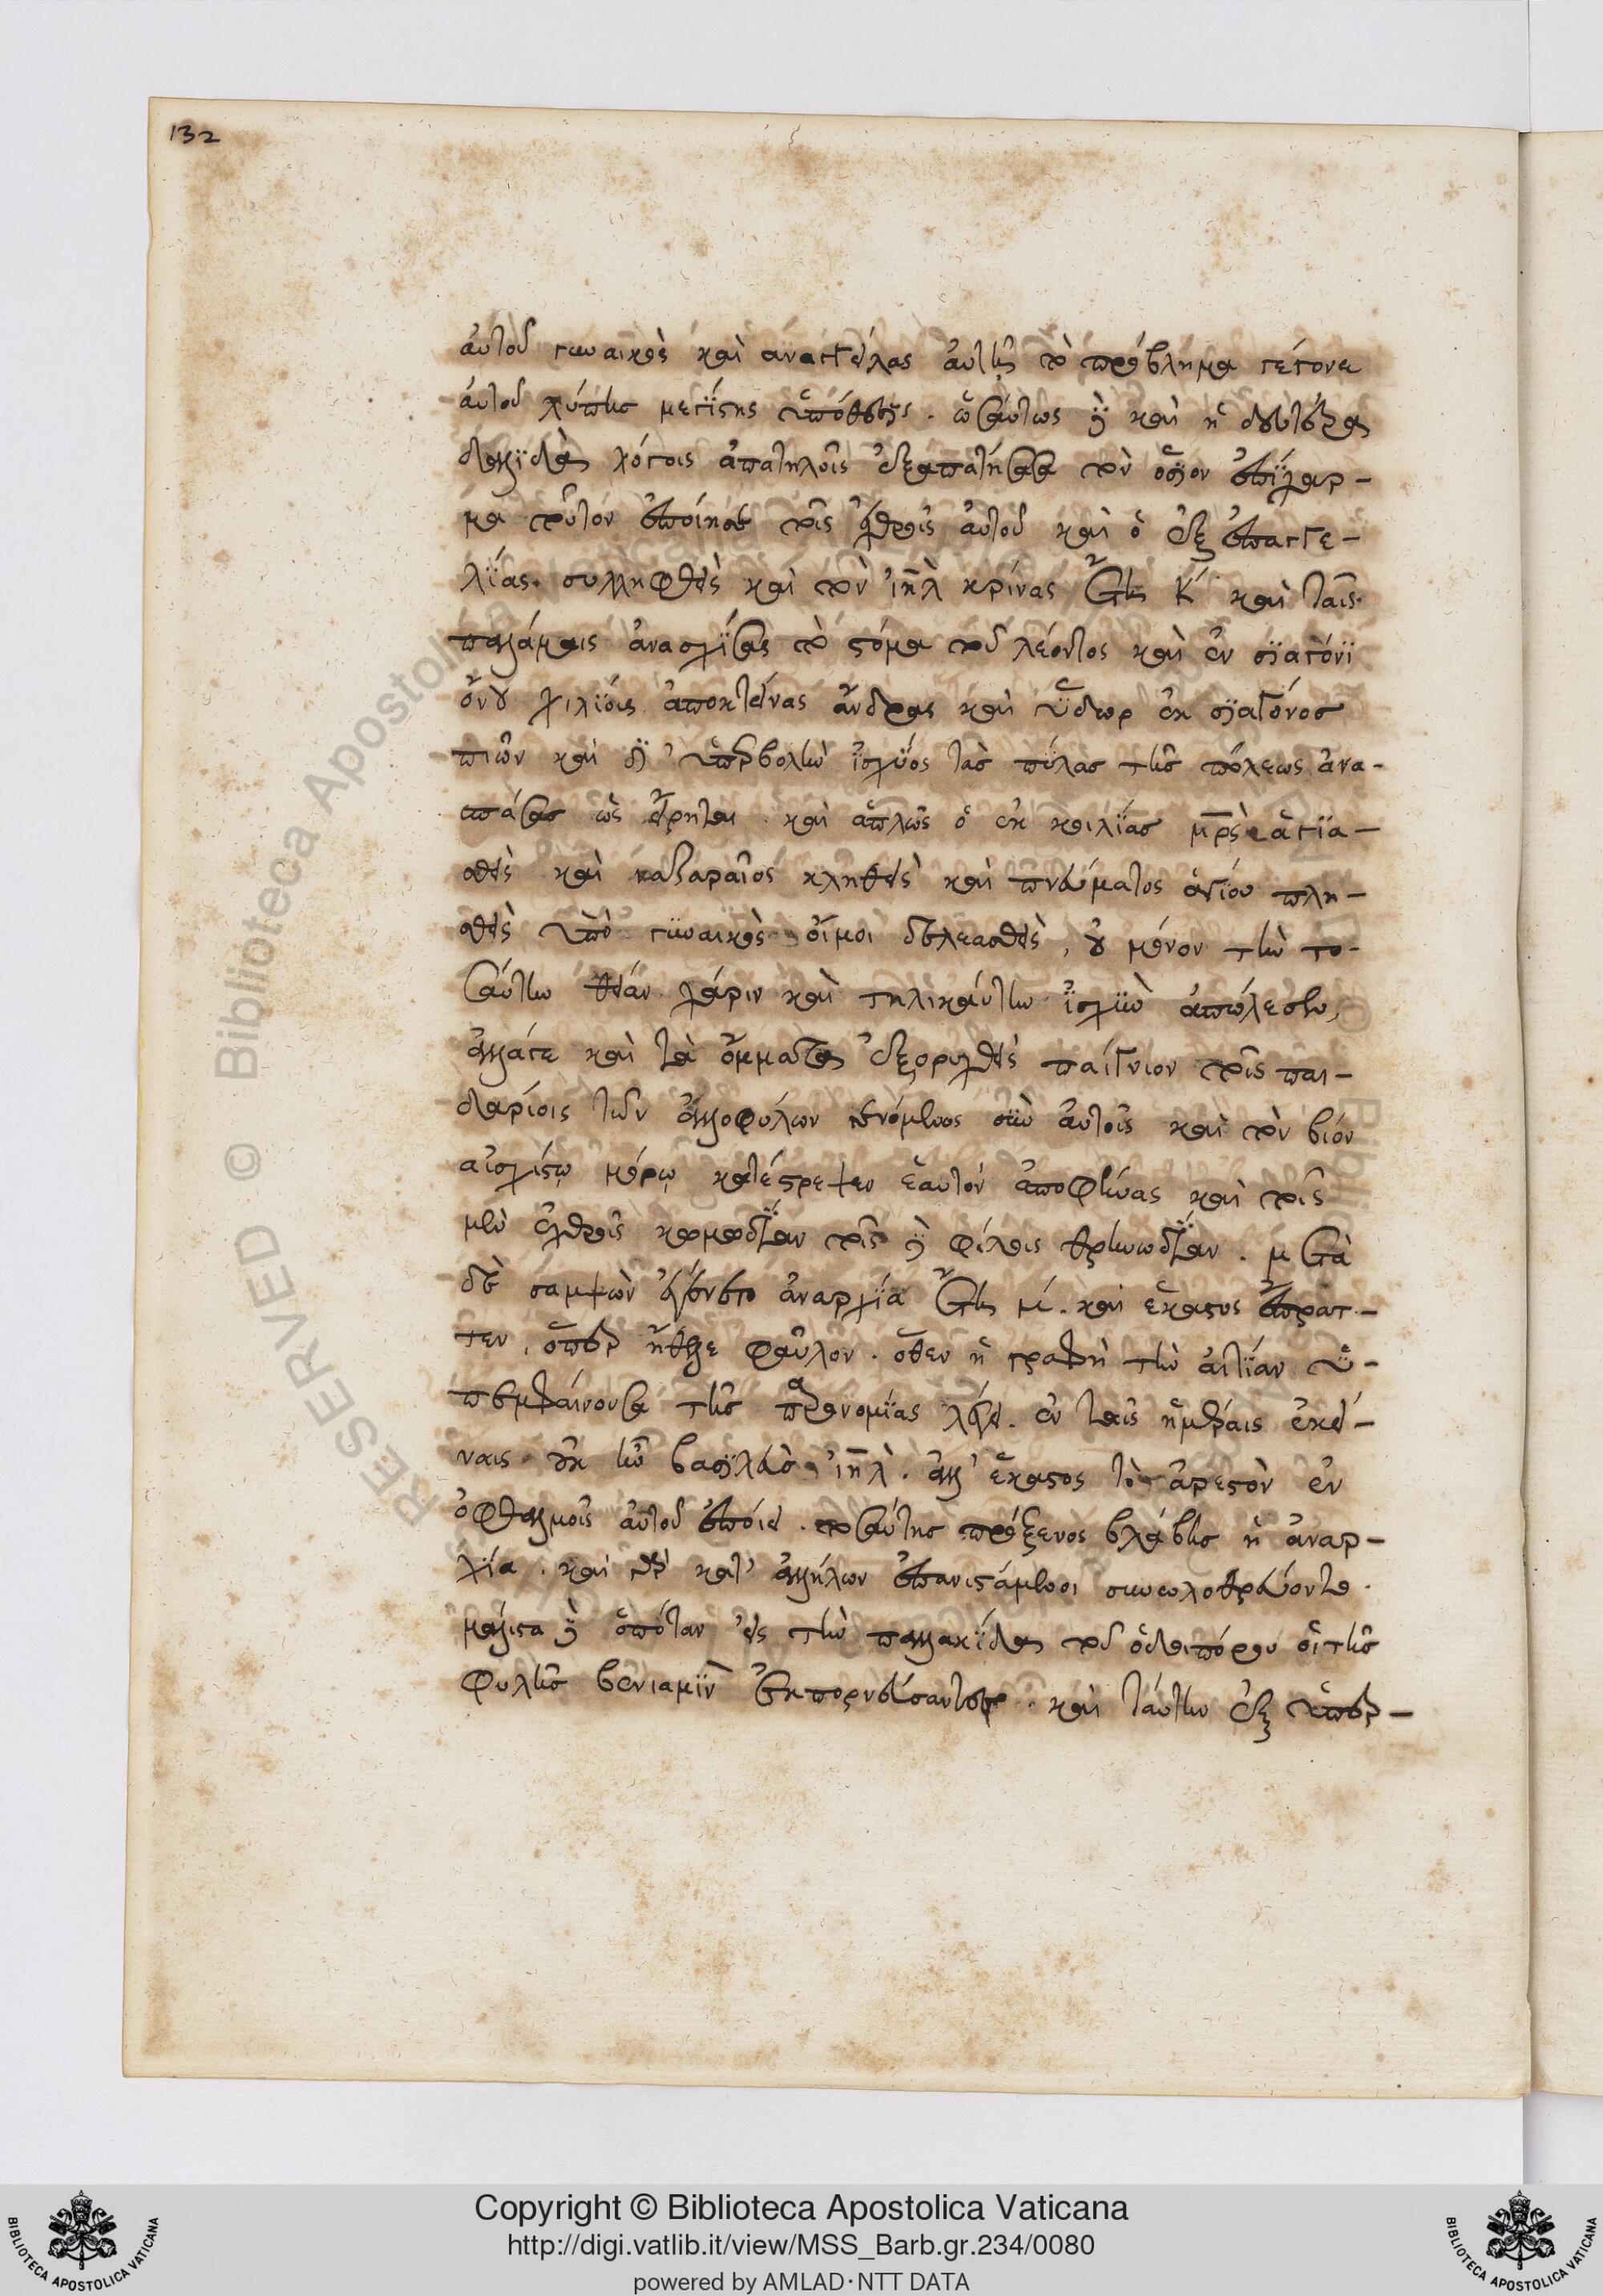 132
αὐτοῦ γυναικὸς καὶ αναγγείλας αὐτῆς τὸ πρόβλημα γέγονε
αὐτοῦ λύπης μεγίστης ὑπόθεσις. ὡσαύτως δὲ καὶ ἡ δευτέρα
δαλιδὰ λόγοις ἀπατηλοῖς ἐξαπατήσασα τὸν ὅσιον ἐπίχαρ-
μα τοῦτον ἐποίησε τοῖς ἐχθροῖς αὐτοῦ καὶ ὁ ἐξ ἐπαγγε-
λίας. συλληφθεὶς καὶ τὸν ἰη̅λ κρίνας ἔτη κ´ καὶ ταῖς
παλάμαις ἀνασχίσας τὸ στόμα τοῦ λέοντος καὶ ἐν σιαγόνι
ὄνου χιλίους ἀποκτείνας ἄνδρας καὶ ὕδωρ ἐκ σιαγόνος
πιῶν καὶ δι' ὑπερβολὴν ἰσχύος τὰς πύλας τῆς πόλεως ἀνα-
σπάσας ὡς εἴρηται. καὶ ἁπλῶς ὁ ἐκ κοιλίας μρ̅ς ἁγια-
σθεὶς καὶ ναζαραῖος κληθεὶς καὶ πνεύματος ἁγίου πλη-
σθεὶς ὑπὸ γυναικὸς οἴμοι δελεασθεὶς, οὐ μόνον τὴν το-
σαύτην θείαν χάριν καὶ τηλικαύτην ἰσχὺν ἀπώλεσεν,
ἀλλάγε καὶ τὰ ὄμματα ἐξορυχθεὶς παίγνιον τοῖς παι-
δαρίοις τῶν ἀλλοφύλων γενόμενος σὺν αὐτοῖς καὶ τὸν βίον
αἰσχίστῳ μόρῳ κατέστρεψεν ἑαυτὸν ἀποφήνας καὶ τοῖς
μὲν ἐχθροῖς κωμωδίαν τοῖς δὲ φίλοις θρηνωδίαν. μετὰ
δὲ σαμψὼν ἐγένετο ἀναρχία ἔτη μ´. καὶ ἕκαστος ἔπρατ-
τεν, ὅπερ ἤθελε φαῦλον. ὅθεν ἡ γραφὴ τὴν αἰτίαν ὑ-
πεμφαίνουσα τῆς παρανομίας λέγει. ἐν ταῖς ἡμέραις ἐκεί-
ναις οὐκ ἦν βασιλεὺς ἰη̅λ. ἀλλ' ἕκαστος τὸ ἀρεστὸν ἐν
ὀφθαλμοῖς αὐτοῦ ἐποίει. τοσαύτης πρόξενος βλάβης ἡ ἀναρ-
χία. καὶ γὰρ κατ' ἀλλήλων ἐπανιστάμενοι συνωλοθρεύοντο.
μάλιστα δὲ ὁπόταν εἰς τὴν παλλακίδα τοῦ ὁδοιπόρου οἱ τῆς
φυλῆς βενιαμὶν ἐκπορνεύσαντες. καὶ ταύτην ἐξ ὑπερ-
RESERVED © Biblioteca Apostolica Vaticana
Copyright © Biblioteca Apostolica Vaticana
http://digi.vatlib.it/view/MSS_Barb.gr.234/0080
powered by AMLAD·NTT DATA
BIBLIOTECA APOSTOLICA VATICANA
BIBLIOTECA APOSTOLICA VATICANA